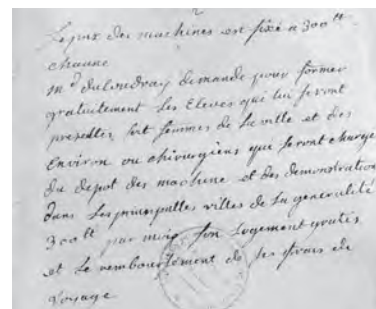 2
Le prix des machines est fixé a 300 lt
chaune
md ducoudray demande pour former
gratuitement les Eleves qui lui seront
presentés soit femmes de la ville et des
Environ ou chirurgiens qui seront chargé
du depot des machine et des demonstration
dans les principalles villes de la generalité
300 lt par mois son logement gratis
et le remboursement de ses frais de
voyage